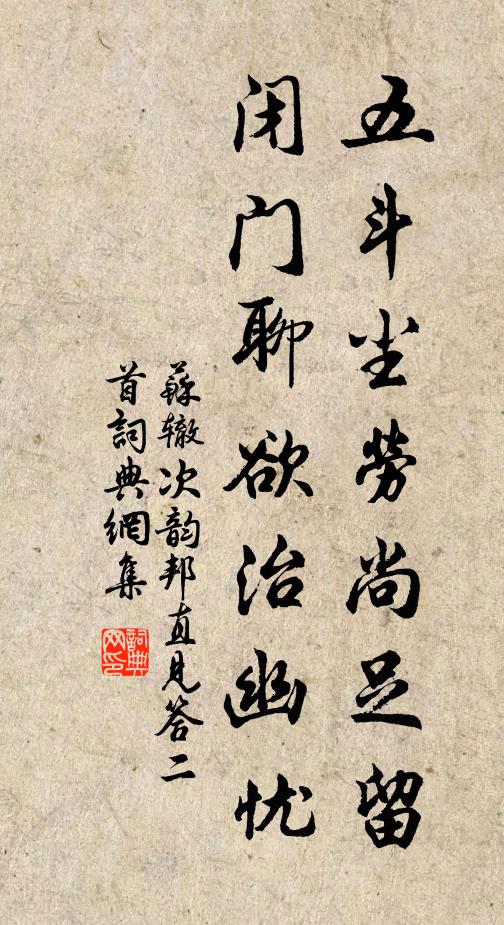 五斗尘劳尚足留
闭门聊欲治幽忧
蘇辙次韵邦直見答二
首詞典網集
詞典网印